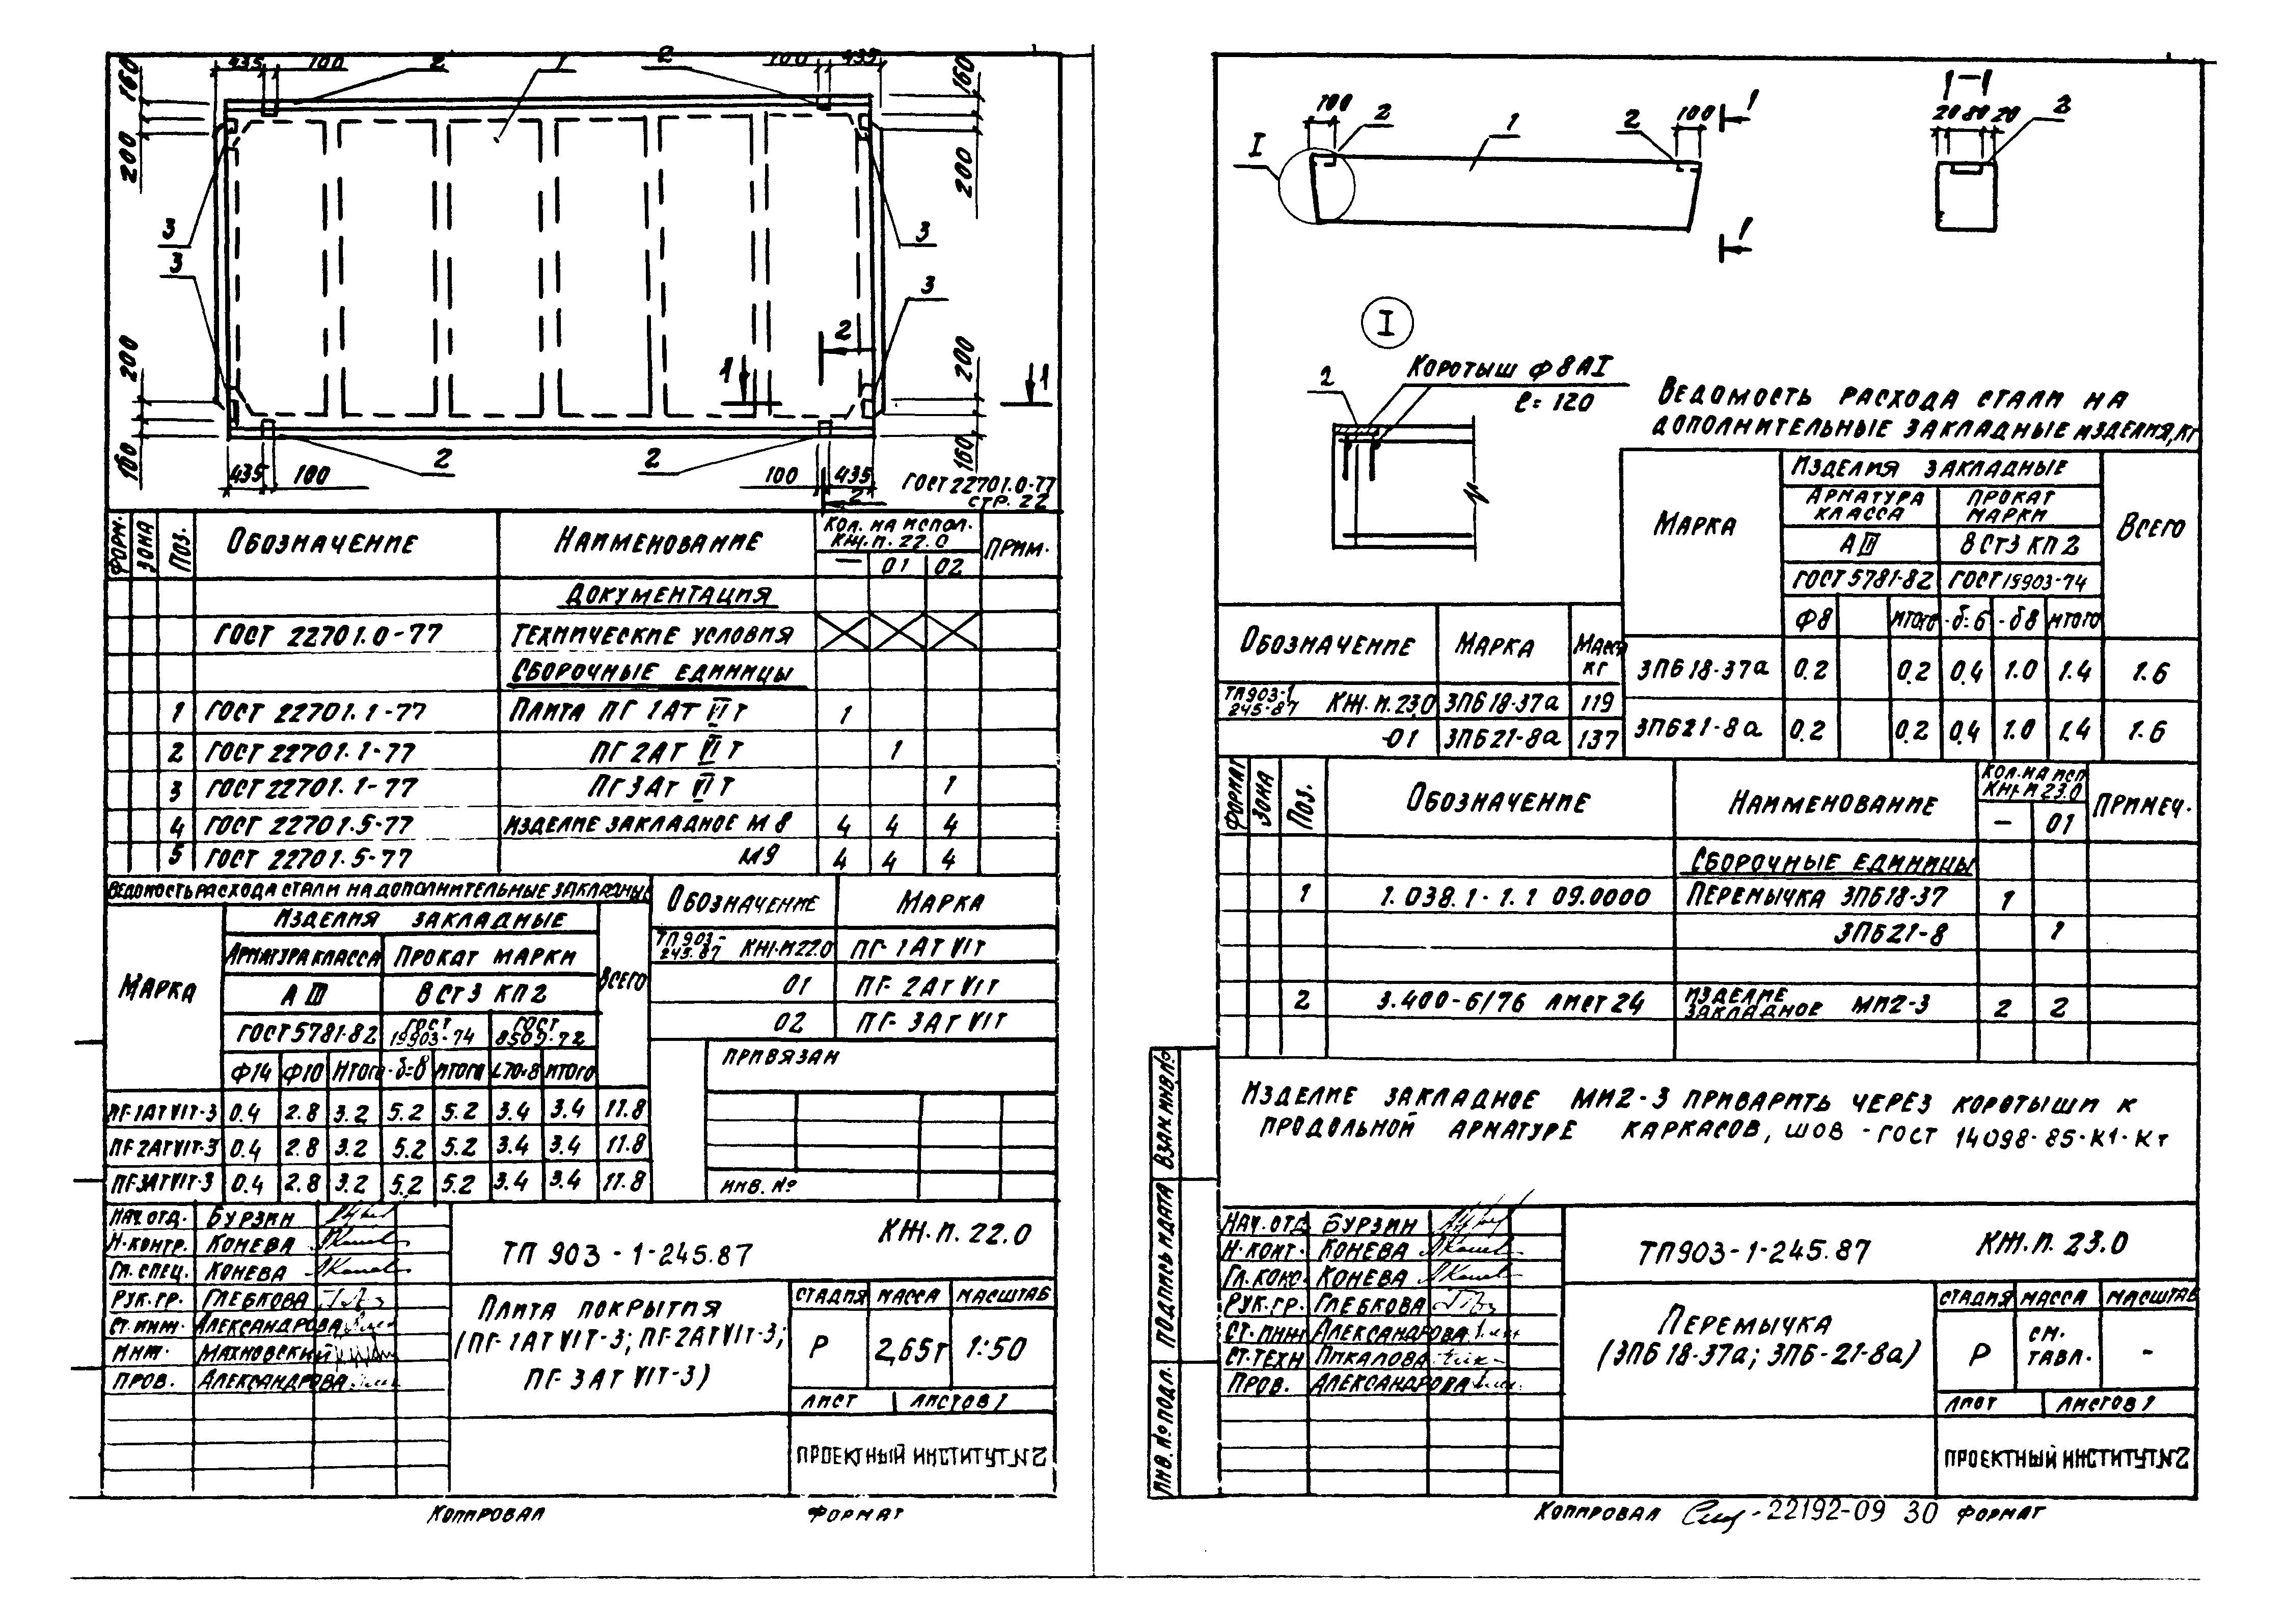 435 100 2 1 2 100 435
160 200 160 200
3 3
3 3
200 200
160 160
2
1 1
435 100 2 2 100 435
2
ГОСТ 22701.0-77
СТР. 22
ФОРМ. ЗОНА ПОЗ. ОБОЗНАЧЕНИЕ НАИМЕНОВАНИЕ КОЛ. НА ИСПОЛ. ПРИМ.
КЖ.П. 22.0
— 01 02
ДОКУМЕНТАЦИЯ
ГОСТ 22701.0-77 ТЕХНИЧЕСКИЕ УСЛОВИЯ
СБОРОЧНЫЕ ЕДИНИЦЫ
1 ГОСТ 22701.1-77 ПЛИТА ПГ 1АТ VI Т 1
2 ГОСТ 22701.1-77 ПГ 2АТ VI Т 1
3 ГОСТ 22701.1-77 ПГ3АТ VI Т 1
4 ГОСТ 22701.5-77 ИЗДЕЛИЕ ЗАКЛАДНОЕ М 8 4 4 4
5 ГОСТ 22701.5-77 М9 4 4 4
ВЕДОМОСТЬ РАСХОДА СТАЛИ НА ДОПОЛНИТЕЛЬНЫЕ ЗАКЛАДНЫЕ
МАРКА ИЗДЕЛИЯ ЗАКЛАДНЫЕ ВСЕГО
АРМАТУРА КЛАССА ПРОКАТ МАРКИ
А III ВСТ3 КП2
ГОСТ 5781-82 ГОСТ 19903-74 ГОСТ 8509-72
Ф14 Ф10 ИТОГО -δ=8 ИТОГО L70×8 ИТОГО
ПГ-1АТVIТ-3 0.4 2.8 3.2 5.2 5.2 3.4 3.4 11.8
ПГ-2АТVIТ-3 0.4 2.8 3.2 5.2 5.2 3.4 3.4 11.8
ПГ-3АТVIТ-3 0.4 2.8 3.2 5.2 5.2 3.4 3.4 11.8
ОБОЗНАЧЕНИЕ МАРКА
ТП 903-
245.87 КЖ.П22.0 ПГ-1АТ VIТ
01 ПГ-2АТ VIТ
02 ПГ-3АТ VIТ
ПРИВЯЗАН
ИНВ. №
НАЧ.ОТД. БУРЗИН
Н.КОНТР. КОНЕВА
ГЛ.СПЕЦ. КОНЕВА
РУК.ГР. ГЛЕБКОВА
СТ.ИНЖ. АЛЕКСАНДРОВА
ИНЖ. МАХНОВСКИЙ
ПРОВ. АЛЕКСАНДРОВА
ТП 903-1-245.87
КЖ.П. 22.0
ПЛИТА ПОКРЫТИЯ
(ПГ-1АТ VIТ-3; ПГ-2АТVIТ-3;
ПГ-3АТ VIТ-3)
СТАДИЯ МАССА МАСШТАБ
Р 2,65т 1:50
ЛИСТ ЛИСТОВ 1
ПРОЕКТНЫЙ ИНСТИТУТ №2
КОПИРОВАЛ ФОРМАТ
I 100 2 1 2 100 1
1
1-1
20 80 20 2
I
2 КОРОТЫШ Ф 8 АI
ℓ= 120
ВЕДОМОСТЬ РАСХОДА СТАЛИ НА
ДОПОЛНИТЕЛЬНЫЕ ЗАКЛАДНЫЕ ИЗДЕЛИЯ, КГ
МАРКА ИЗДЕЛИЯ ЗАКЛАДНЫЕ ВСЕГО
АРМАТУРА КЛАССА ПРОКАТ МАРКИ
А III ВСТ3 КП2
ГОСТ 5781-82 ГОСТ 19903-74
Ф8 ИТОГО -δ=6 -δ8 ИТОГО
3ПБ18-37а 0.2 0.2 0.4 1.0 1.4 1.6
3ПБ21-8а 0.2 0.2 0.4 1.0 1.4 1.6
ОБОЗНАЧЕНИЕ МАРКА МАССА КГ
ТП903-1
245-87 КЖ.П.23.0 3ПБ18-37а 119
-01 3ПБ21-8а 137
ФОРМАТ ЗОНА ПОЗ. ОБОЗНАЧЕНИЕ НАИМЕНОВАНИЕ КОЛ. НА ИСП ПРИМЕЧ.
КЖ.П 23.0
— 01
СБОРОЧНЫЕ ЕДИНИЦЫ
1 1.038.1-1.1 09.0000 ПЕРЕМЫЧКА 3ПБ18-37 1
3ПБ21-8 1
2 3.400-6/76 ЛИСТ 24 ИЗДЕЛИЕ ЗАКЛАДНОЕ МИ2-3 2 2
ИЗДЕЛИЕ ЗАКЛАДНОЕ МИ2-3 ПРИВАРИТЬ ЧЕРЕЗ КОРОТЫШИ К
ПРОДОЛЬНОЙ АРМАТУРЕ КАРКАСОВ, ШОВ - ГОСТ 14098-85-К1-Кт
ВЗАМ.ИНВ.№
ПОДПИСЬ И ДАТА
ИНВ. № ПОДЛ.
НАЧ.ОТД БУРЗИН
Н.КОНТ. КОНЕВА
ГЛ.КОНС. КОНЕВА
РУК.ГР. ГЛЕБКОВА
СТ.ИНЖ АЛЕКСАНДРОВА
СТ.ТЕХН ПИКАЛОВА
ПРОВ. АЛЕКСАНДРОВА
ТП903-1-245.87
КЖ.П. 23.0
ПЕРЕМЫЧКА
(3ПБ 18-37а; 3ПБ-21-8а)
СТАДИЯ МАССА МАСШТАБ
Р СМ. ТАБЛ. -
ЛИСТ ЛИСТОВ 1
ПРОЕКТНЫЙ ИНСТИТУТ №2
КОПИРОВАЛ -22192-09 30 ФОРМАТ